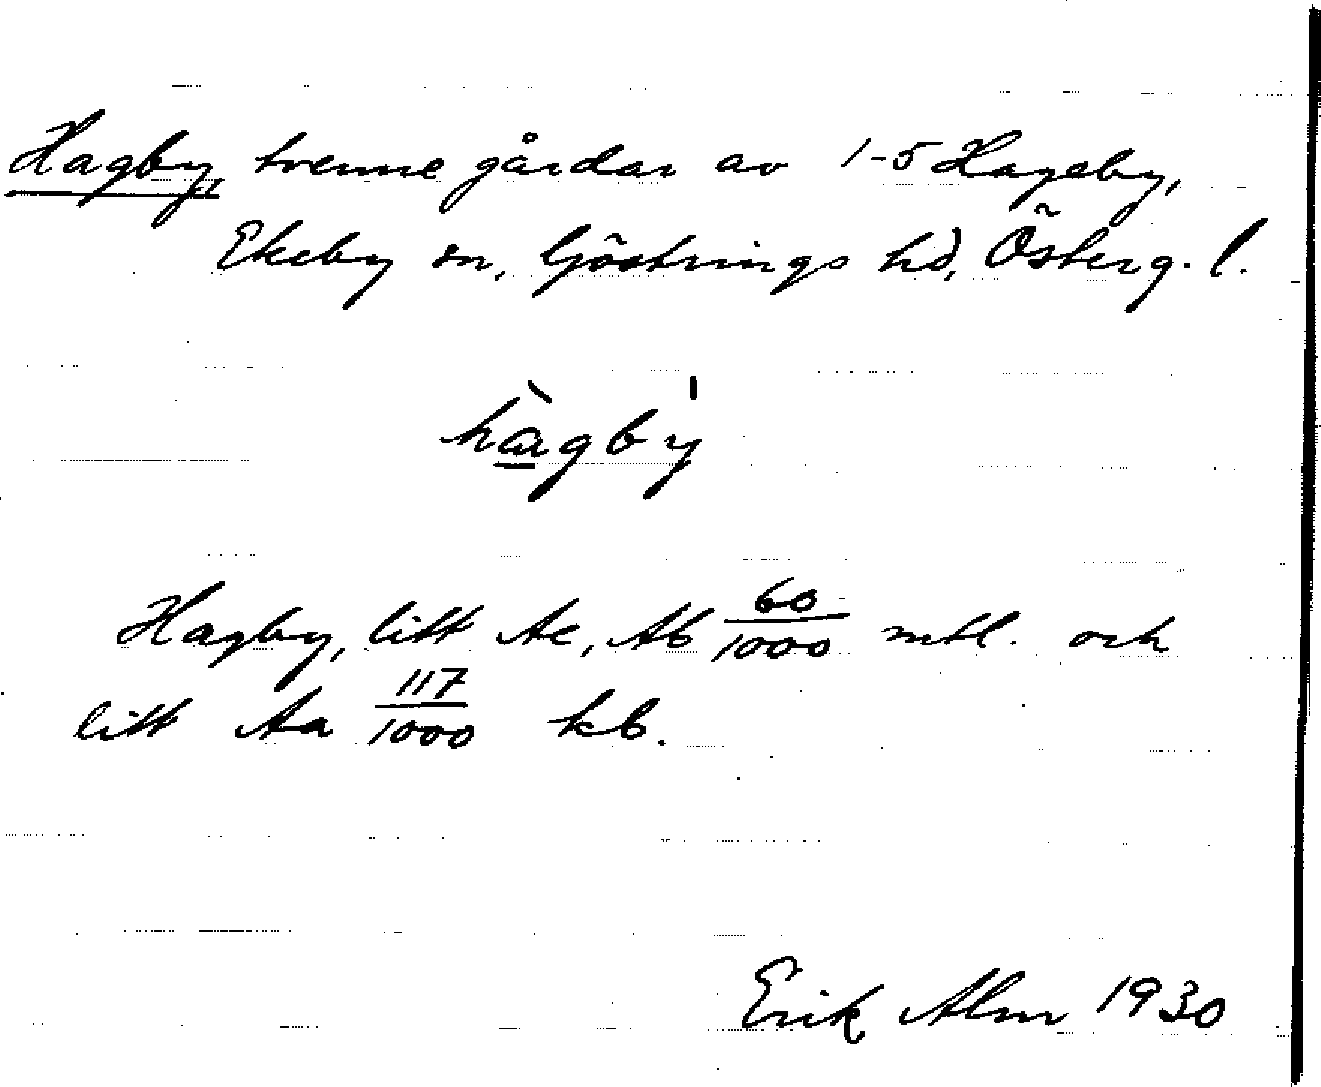 Hagby, trenne gårdar av 1-5 Hageby,
Ekeby sn, Göstrings hd, Österg. l.
hàgbý
Hagby, litt Ac, Ab 60/1000 mtl. och
litt Aa 117/1000 kb.
Erik Alm 1930